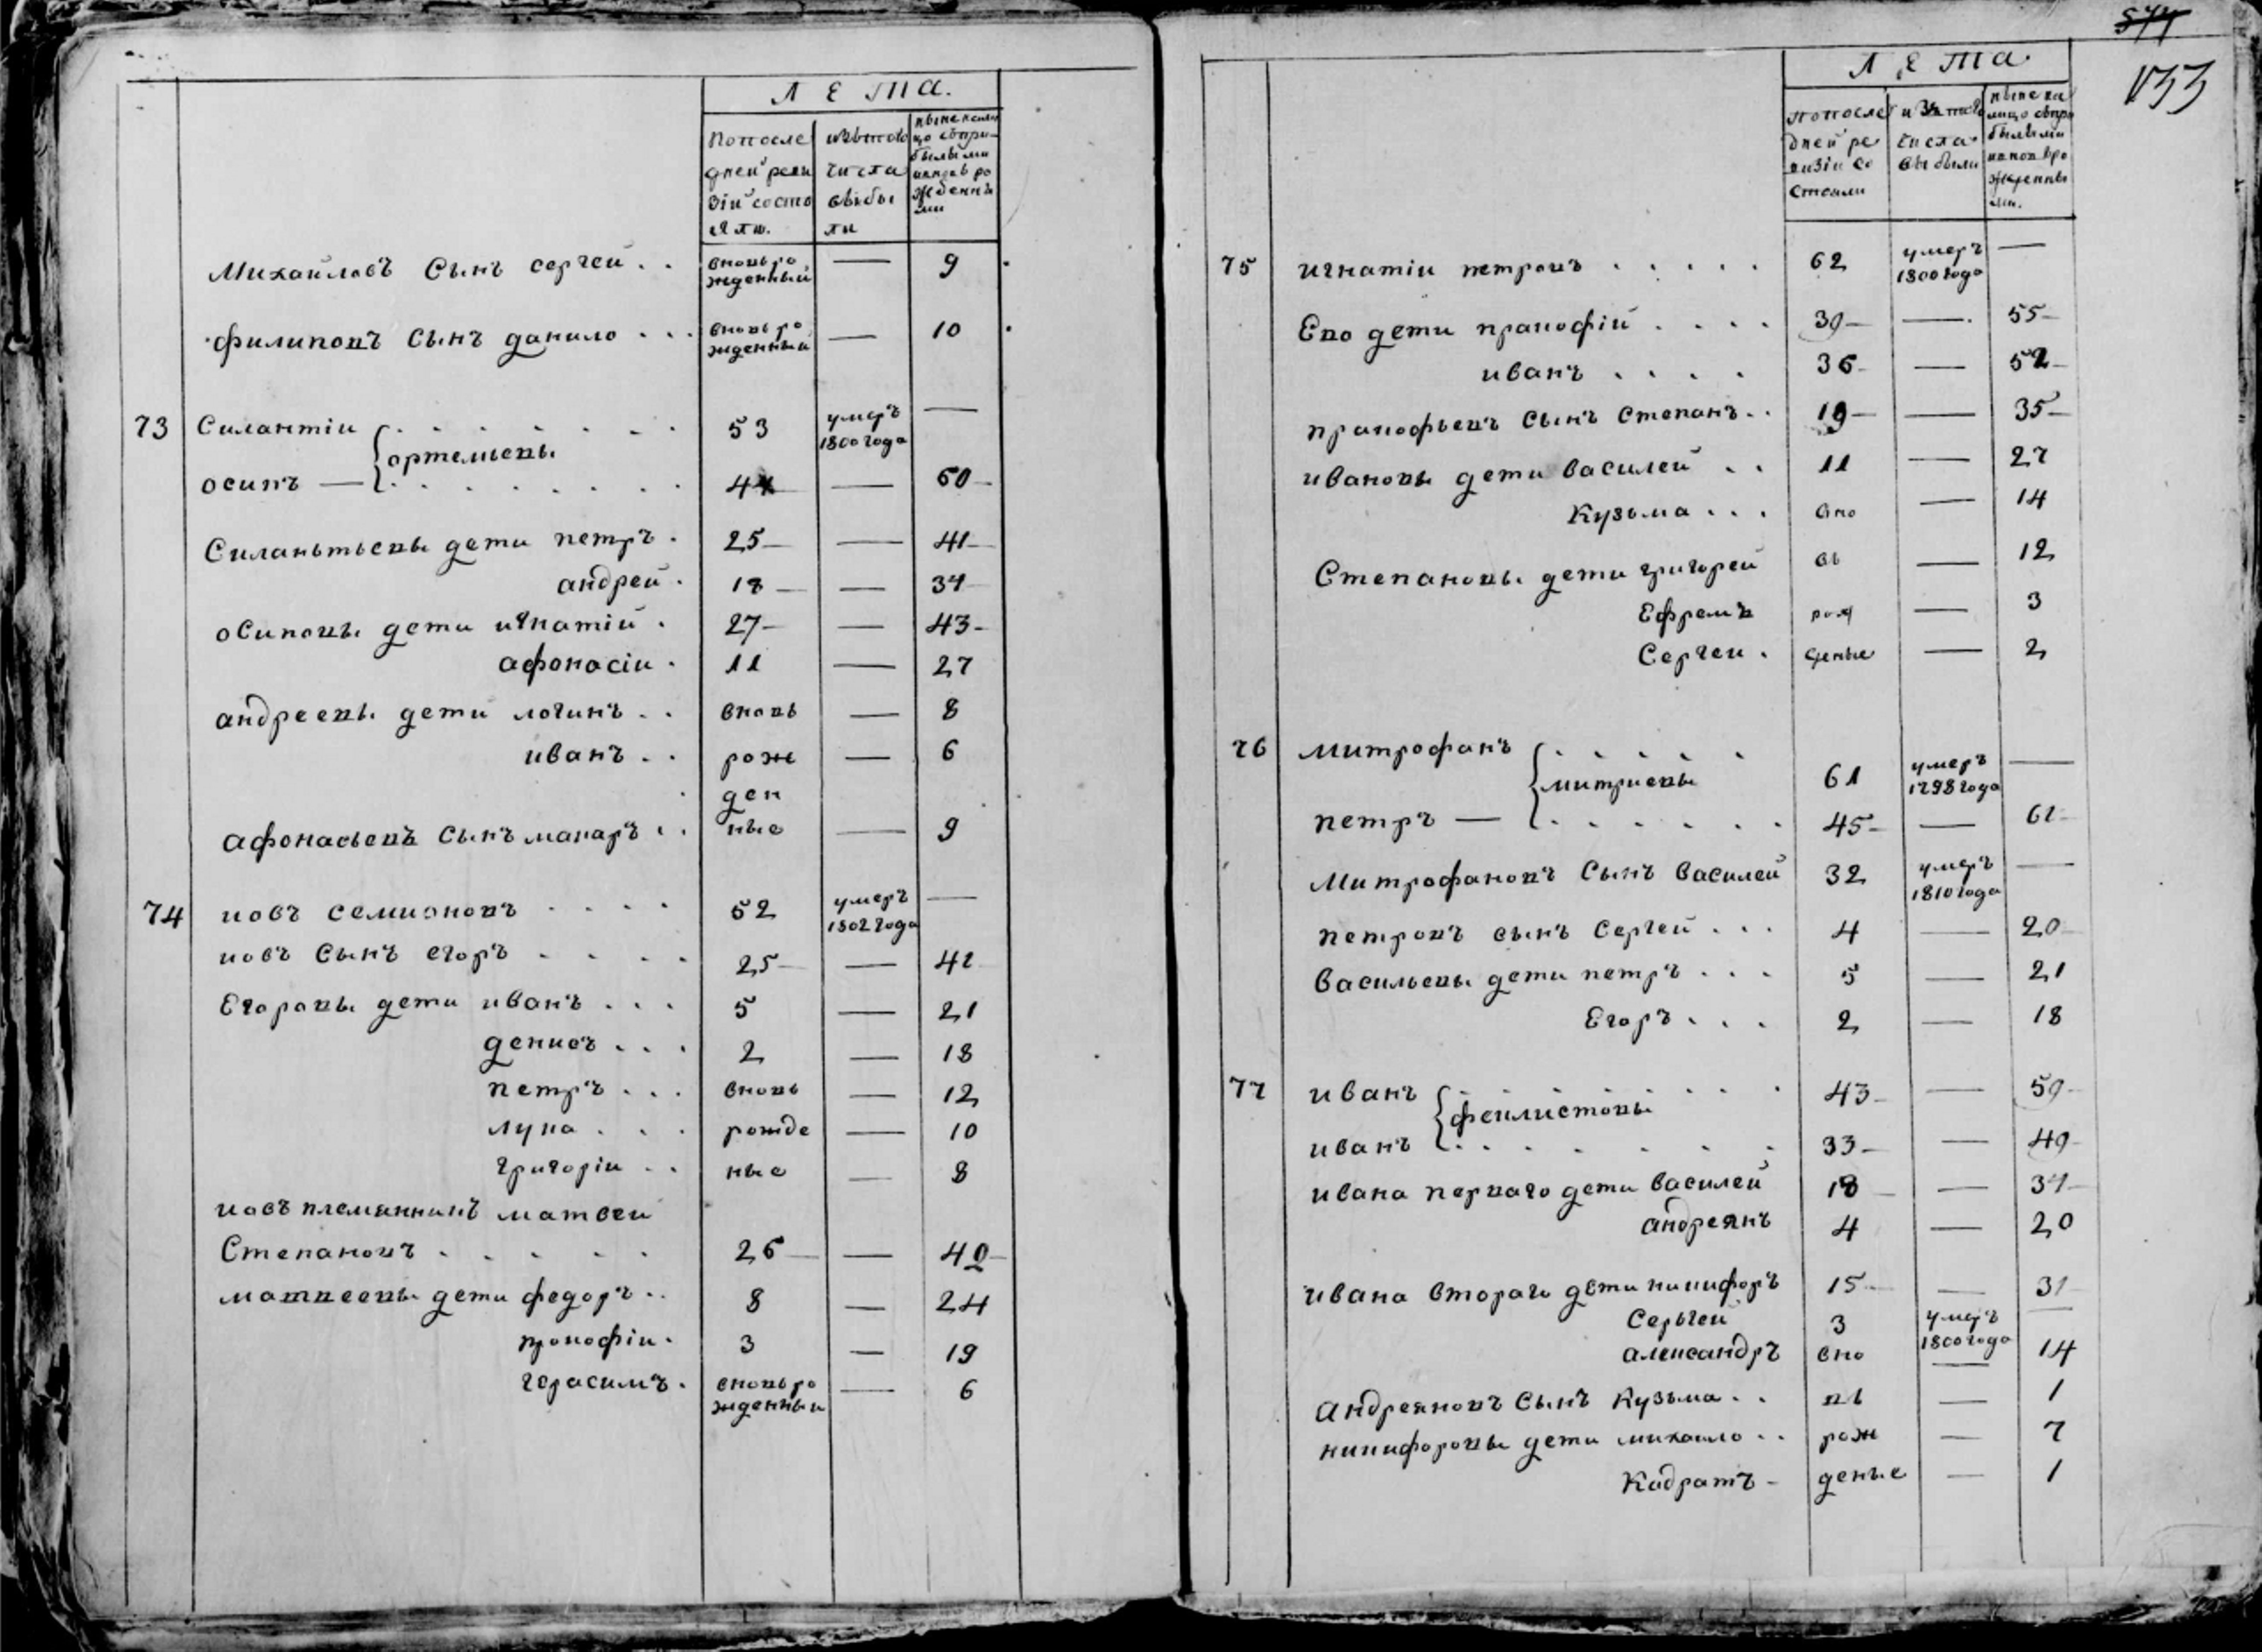 ЛЕТА.
Попосле
дней реви
зiй состо
яли.
изътого
числа
выбы
ли
ныне нали
цо сьпри
былыми
ивновь ро
жденны
ми
Михайловъ Сынъ сергей . . вновь ро жденный — 9
филиповъ Сынъ данило . . . вновь ро жденный — 10
73 Силантiи ортемьевы 53 умеръ 1800 года —
осипъ — 44 — 60
Силаньтьевы дети петръ . 25 — 41
андрей . 18 — 34
осиповы дети игнатiй . 27 — 43
афонасiи . 11 — 27
андреевы дети логинъ . . вновь — 8
иванъ . . рож — 6
ден
афонасьевъ Сынъ макаръ . . ные — 9
74 иовъ семионовъ . . . . 52 умеръ 1802 года —
иовъ Сынъ егоръ . . . . 25 — 41
Егоровы дети иванъ . . . 5 — 21
денисъ . . . 2 — 18
петръ . . . вновь — 12
лука . . . рожде — 10
григорiи . . ные — 8
иовъ племянникъ матвеи
Степановъ . . . . . 26 — 42
матвеевы дети федоръ . . 8 — 24
прокофiи . 3 — 19
герасимъ . вновь ро жденныи — 6
577
133
ЛЕТА.
попосле
дней ре
визiи со
стояли
изътого
числа
выбыли
ныне на
лицо сьпри
былыми
ивновь ро
жденны
ми.
75 игнатiи петровъ . . . . . 62 умеръ 1800 года —
Ево дети пракофiй . . . . 39 — 55
иванъ . . . . 36 — 52
пракофьевъ Сынъ Степанъ . . 19 — 35
ивановы дети василей . . 11 — 27
Кузьма . . . вно — 14
Степановы дети григорей вь — 12
Ефремъ рож — 3
Сергеи . деные — 2
76 митрофанъ митриевы 61 умеръ 1798 года —
петръ — 45 — 61
Митрофановъ Сынъ василей 32 умеръ 1810 года —
петровъ сынъ Сергей . . . 4 — 20
Васильевы дети петръ . . . 5 — 21
Егоръ . . . 2 — 18
77 иванъ феилистовы 43 — 59
иванъ 33 — 49
ивана перваго дети василей 18 — 34
андреянъ 4 — 20
ивана втораго дети никифоръ 15 — 31
Серьгей 3 умеръ 1800 года —
александръ вно — 14
Андреяновъ Сынъ Кузьма . . вь — 1
никифоровы дети михаило . . рож — 7
Кадратъ - деные — 1